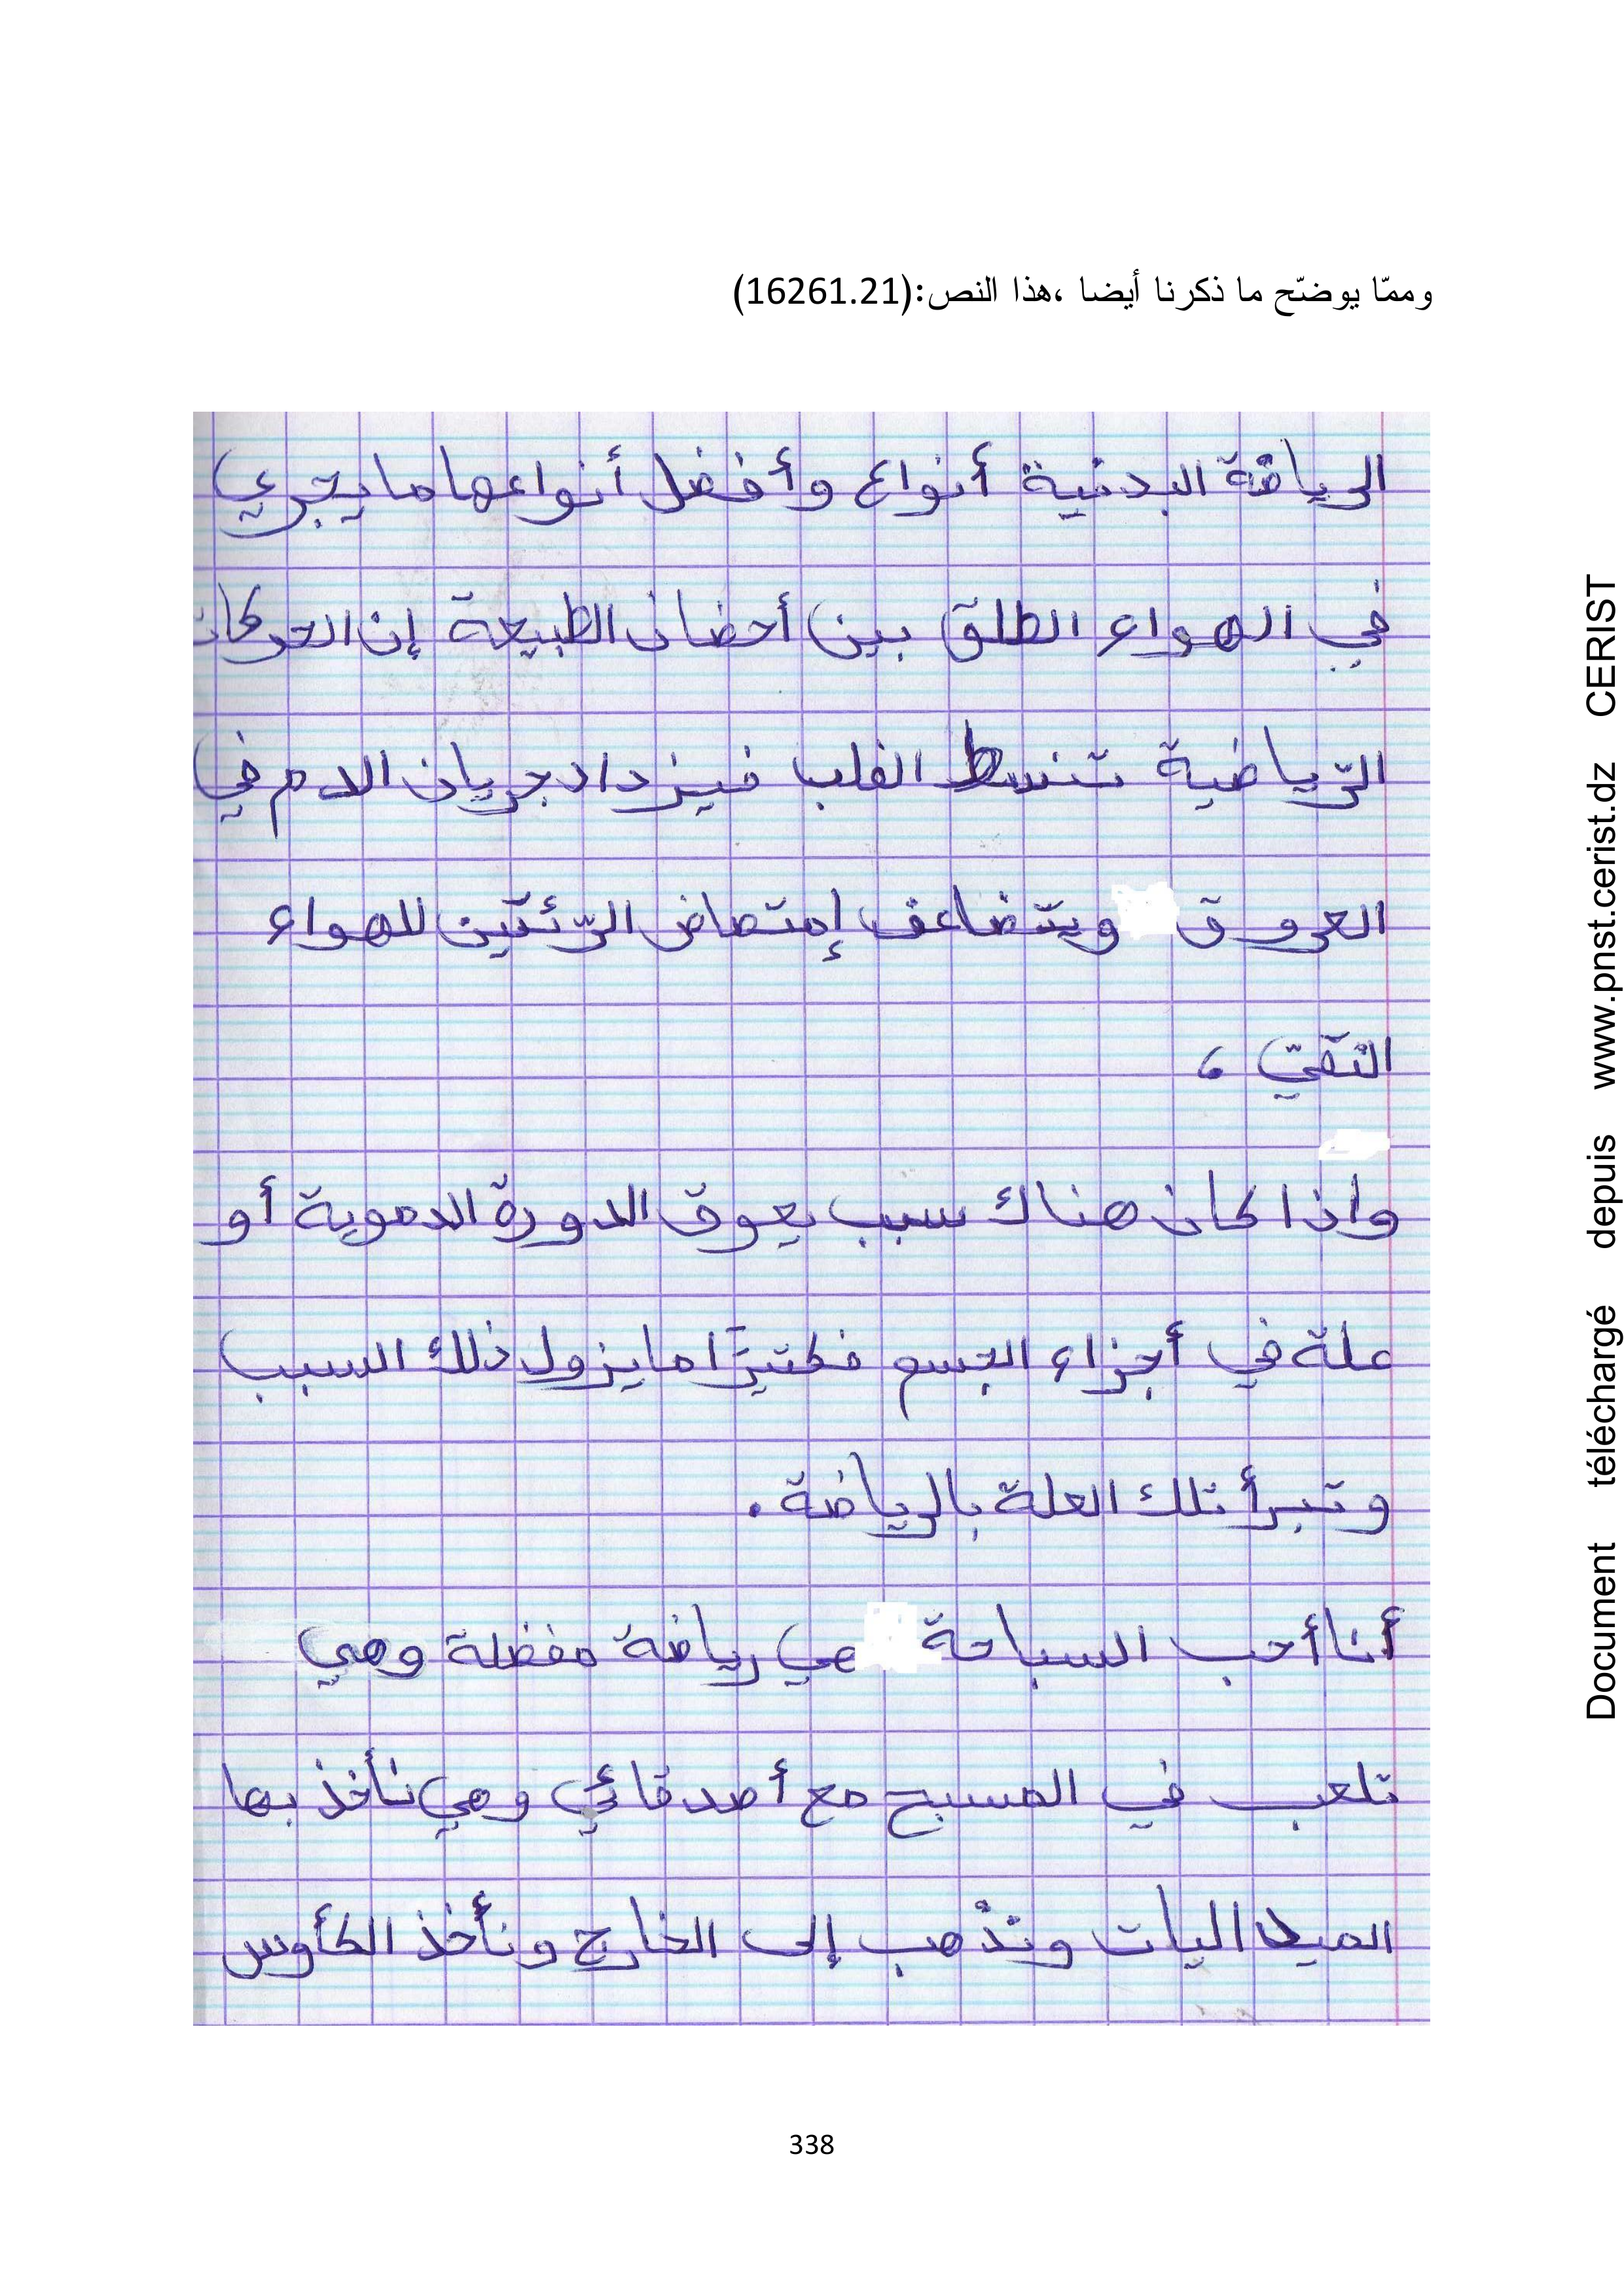 وممّا يوضّح ما ذكرنا أيضا ،هذا النص:(16261.21)
الرياضة البدنية أنواع وأفضل أنواعها ما يجري
في الهواء الطلق بين أحضان الطبيعة إن الحركات
الرّياضية تنسط القلب فيزداد جريان الدم في
العروق ويتضاعف إمتصاض الرّئتين للهواء
النقيّ ،
واذا كان هناك سبب يعوق الدورة الدموية أو
علة في أجزاء الجسم فكتيرًا ما يزول ذلك السبب
وتبرأ تلك العلة بالرياضة .
أنا أحب السباحة هي رياضة مفضلة وهي
تلعب في المسبح مع أصدقائي وهي نأخذ بها
الميداليات ونذهب إلى الخارج ونأخذ الكأوس
338
Document téléchargé depuis www.pnst.cerist.dz CERIST